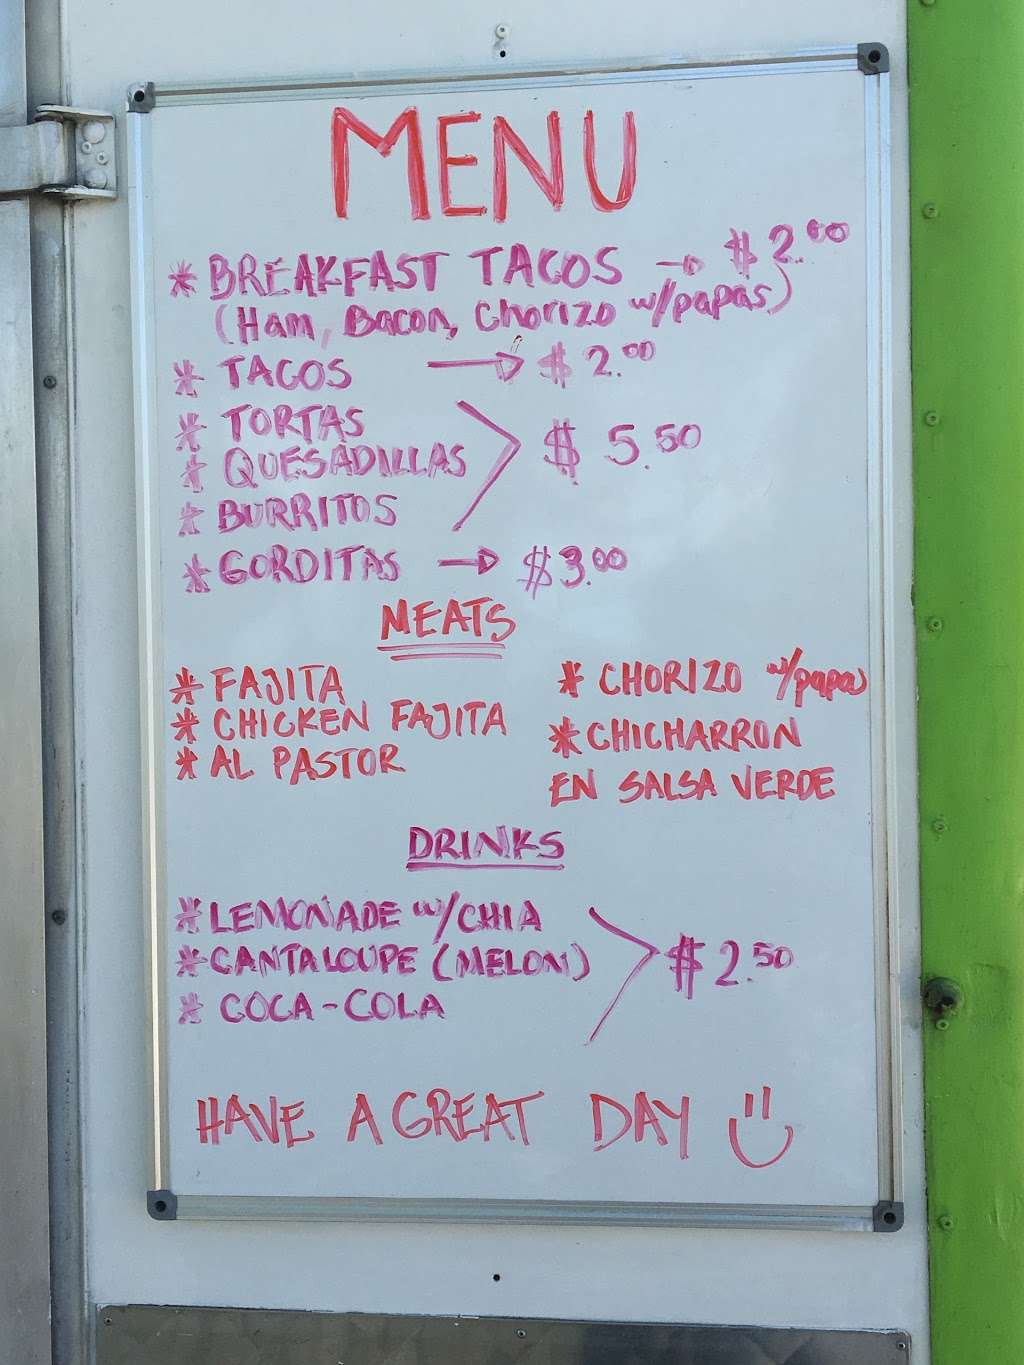 MENU
* BREAKFAST TACOS → $2.00
(Ham, Bacon, Chorizo w/papas)
* TACOS → $2.00
* TORTAS
* QUESADILLAS $5.50
* BURRITOS
* GORDITAS → $3.00
MEATS
* FAJITA
* CHICKEN FAJITA
* AL PASTOR
* CHORIZO w/papas
* CHICHARRON
EN SALSA VERDE
DRINKS
* LEMONADE w/CHIA
* CANTALOUPE (MELON) $2.50
* COCA-COLA
HAVE A GREAT DAY